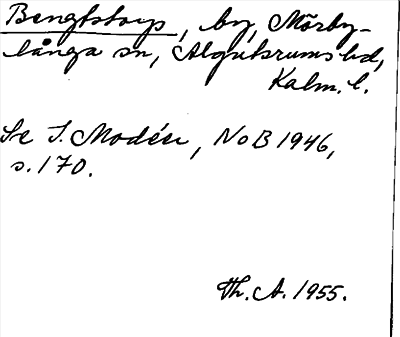 Bengtstorp, by, Mörby-
långa sn, Algutsrums hd,
Kalm. l.
Se I. Modéer, NoB 1946,
s. 170.
Th. A. 1955.